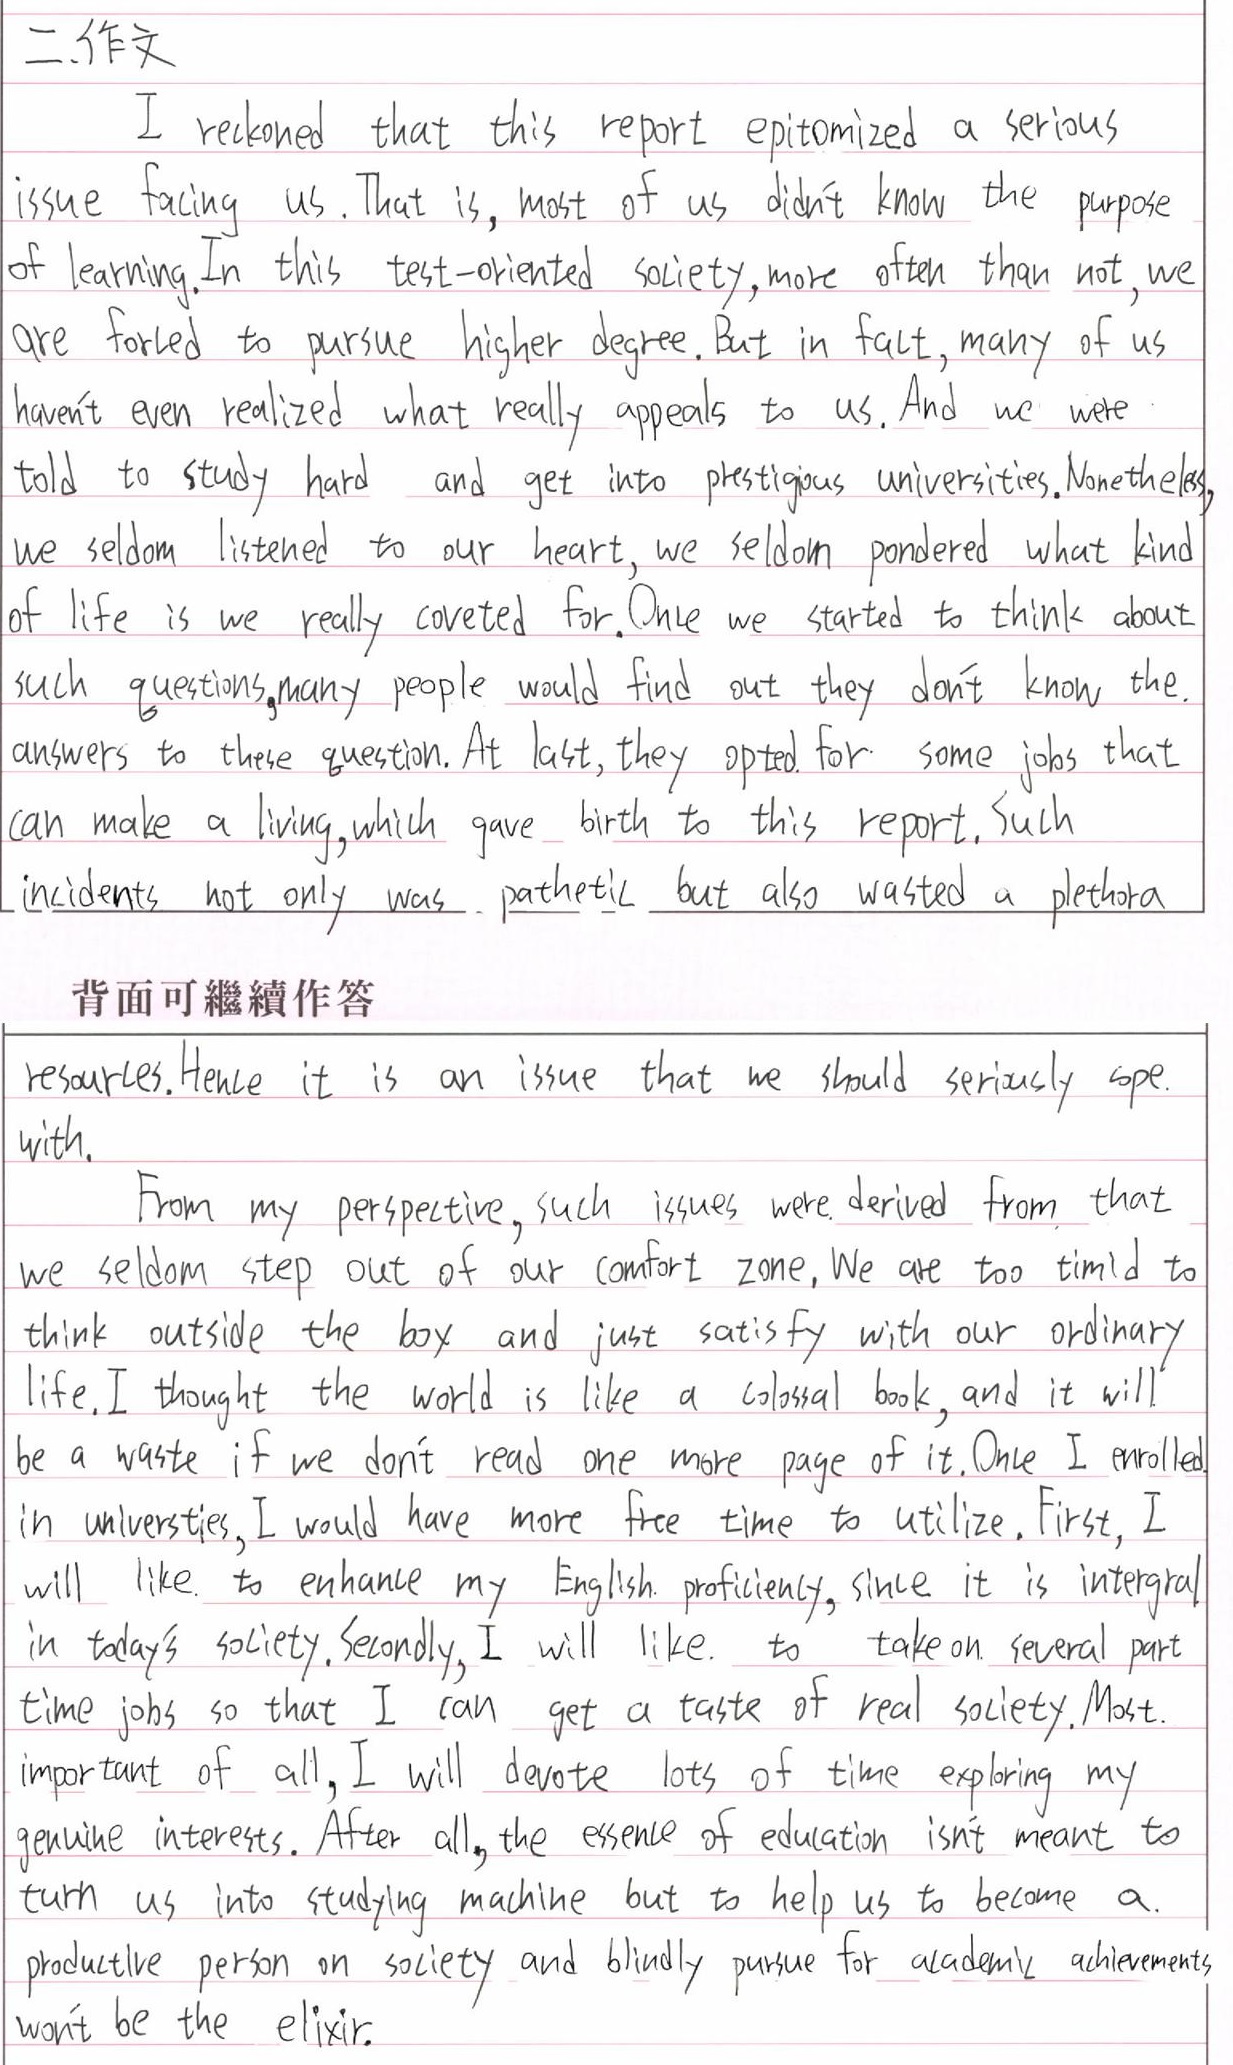 二、作文
I reckoned that this report epitomized a serious
issue facing us. That is, most of us didn't know the purpose
of learning. In this test-oriented society, more often than not, we
are forced to pursue higher degree. But in fact, many of us
haven't even realized what really appeals to us. And we were
told to study hard and get into prestigious universities. Nonetheless,
we seldom listened to our heart, we seldom pondered what kind
of life is we really coveted for. Once we started to think about
such questions, many people would find out they don't know the
answers to these question. At last, they opted for some jobs that
can make a living, which gave birth to this report. Such
incidents not only was pathetic but also wasted a plethora
背面可繼續作答
resources. Hence it is an issue that we should seriously cope
with.
From my perspective, such issues were derived from that
we seldom step out of our comfort zone. We are too timid to
think outside the box and just satisfy with our ordinary
life. I thought the world is like a colossal book, and it will
be a waste if we don't read one more page of it. Once I enrolled
in universties, I would have more free time to utilize. First, I
will like to enhance my English proficiency, since it is intergral
in today's society. Secondly, I will like to take on several part
time jobs so that I can get a taste of real society. Most
important of all, I will devote lots of time exploring my
genuine interests. After all, the essence of education isn't meant to
turn us into studying machine but to help us to become a
productive person on society and blindly pursue for academic achievements
won't be the elixir.